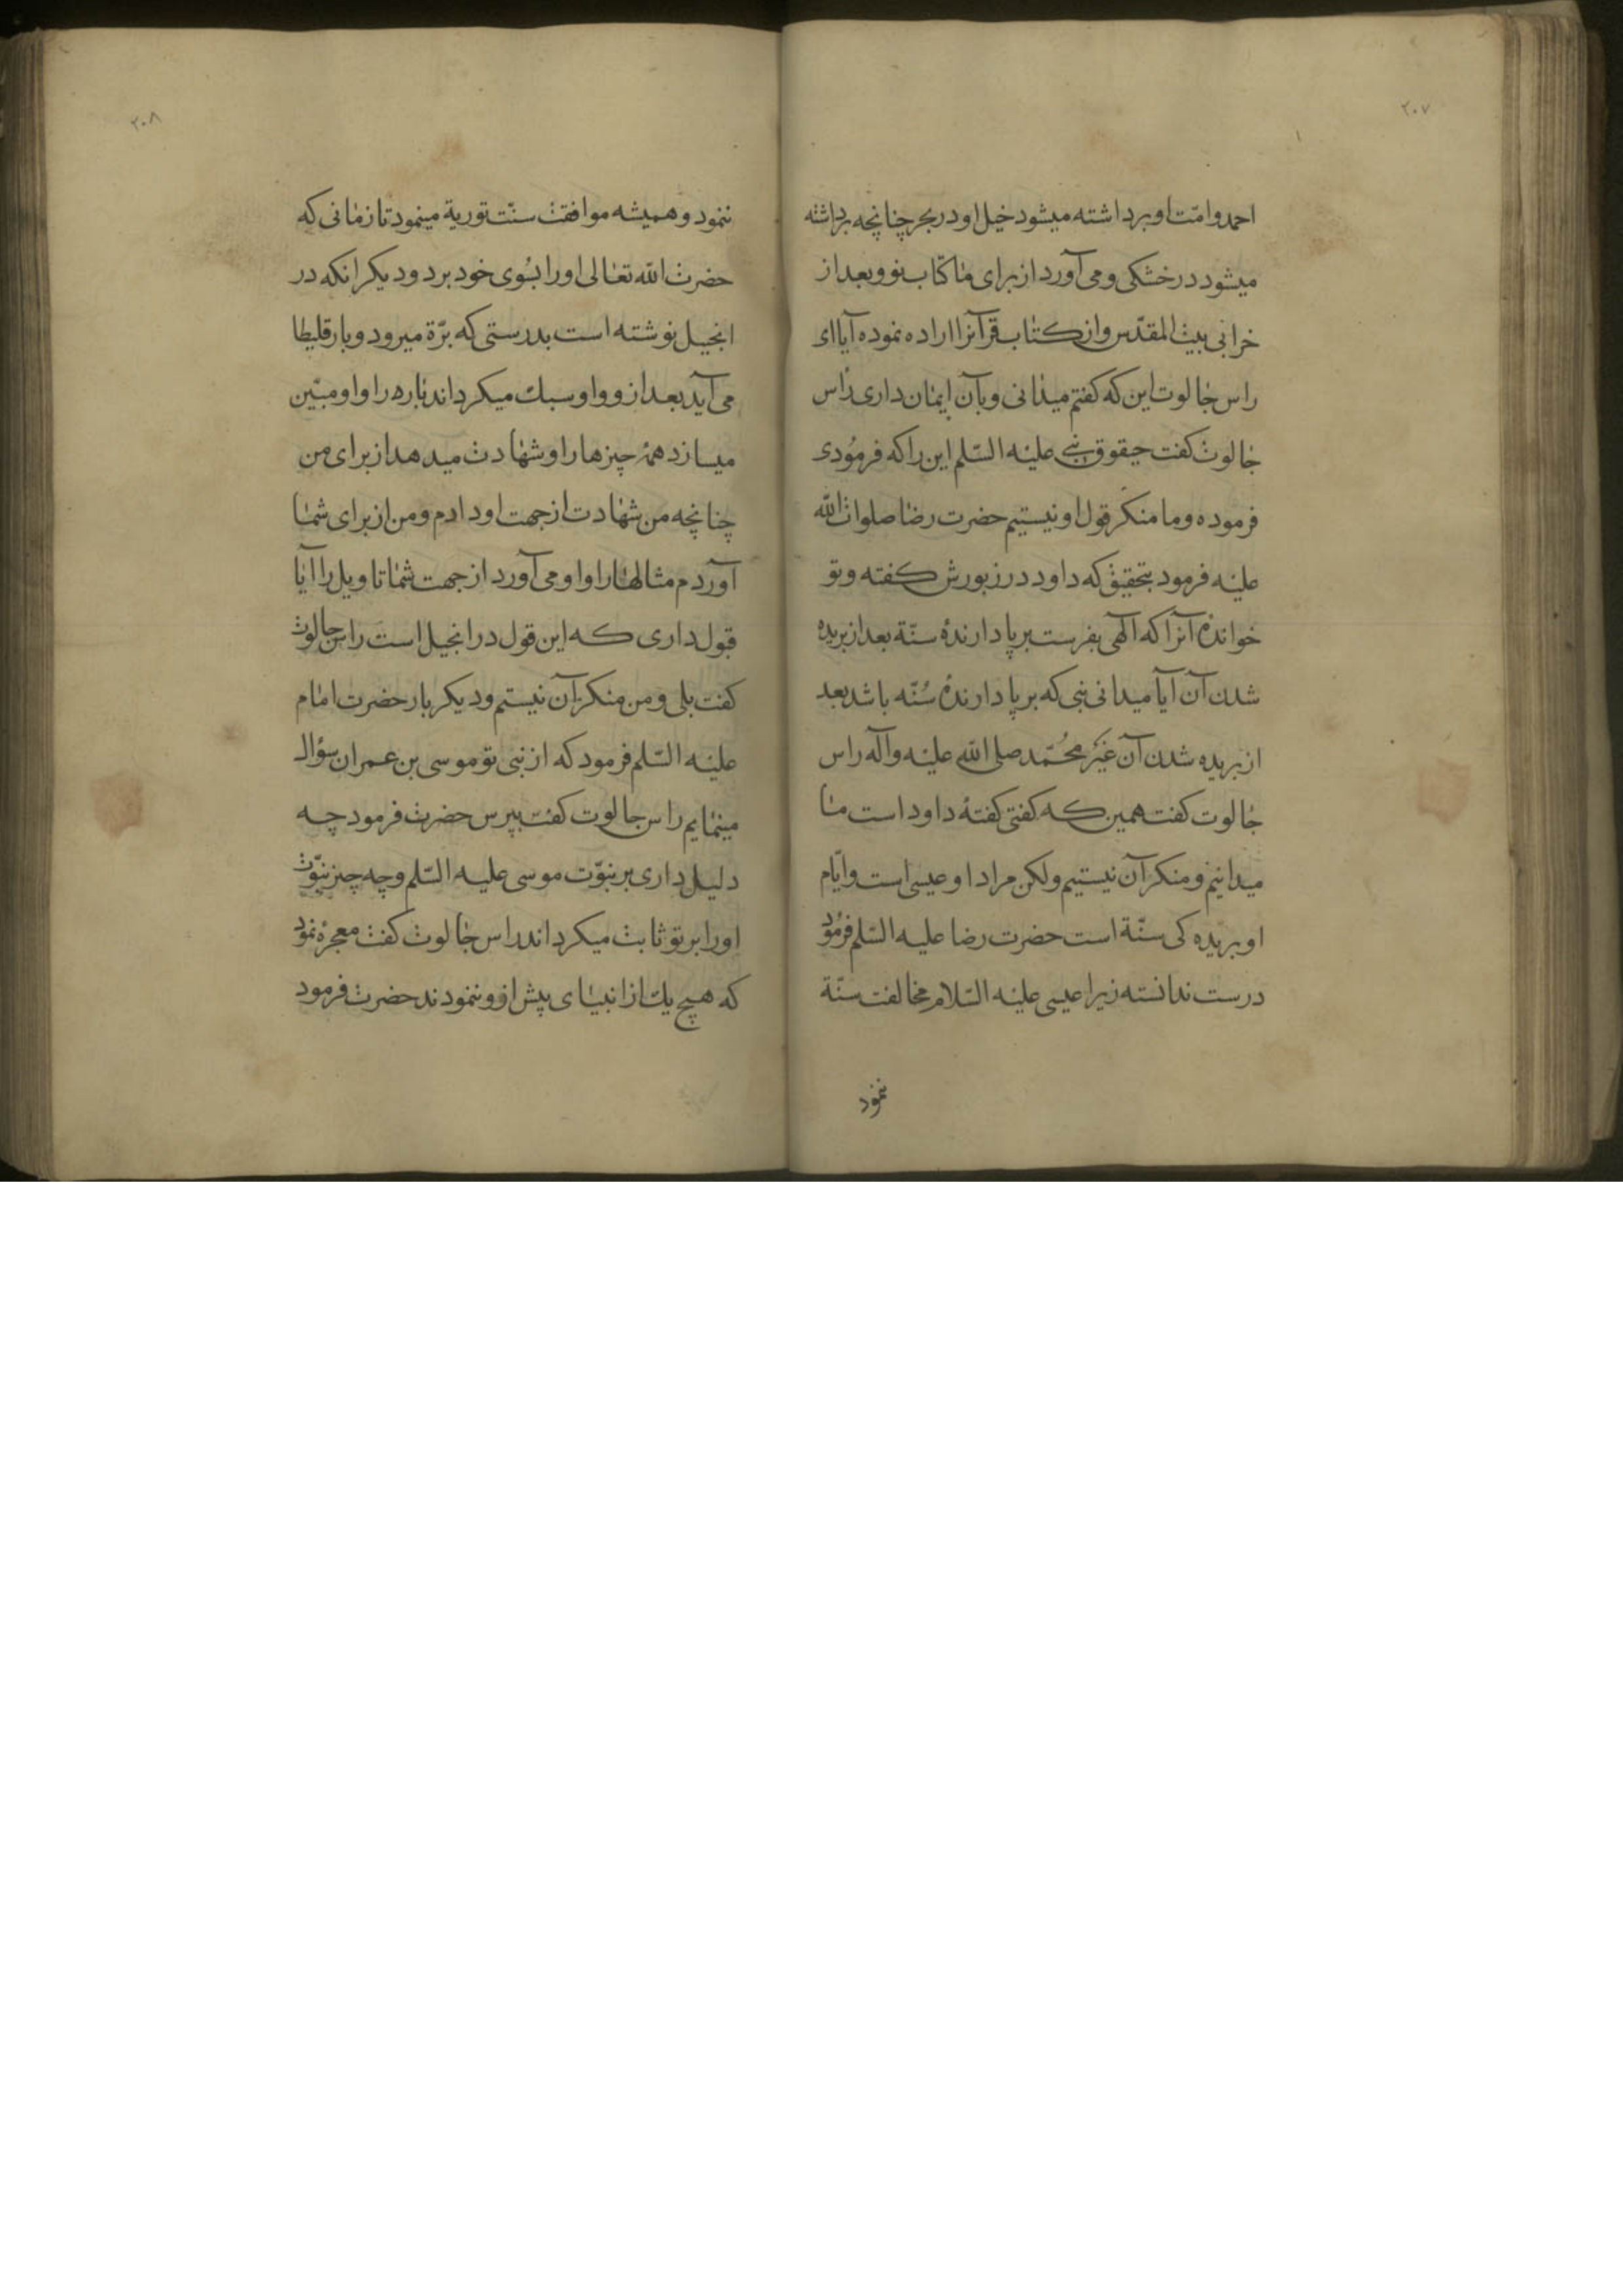 ٢٠٧
احمد و امّت او برداشته میشود خیل او در بحر چنانچه برداشته
میشود در خشکی و می آورد از برای ما کتاب نو و بعد از
خرابی بیت المقدّس و از کتاب قرآنرا اراده نموده آیا ای
راس جالوت این که کفتم میدانی و بآن ایمان داری راس
جالوت کفت حیقوق نبی علیه السّلم این را که فرمودی
فرموده و ما منکر قول او نیستیم حضرت رضا صلوات اللّه
علیه فرمود بتحقیق که داود در زبورش کفته و تو
خواندهٔ آنرا که آلهی بفرست بر پا دارندهٔ سنّة بعد از بریده
شدن آن آیا میدانی نبی که بر پا دارندهٔ سُنّه باشد بعد
از بریده شدن آن غَیر محُمّد صلی اللّه علیه و آله راس
جالوت کفت همین که کفتی کفتهٔ داود است ما
میدانیم و منکر آن نیستیم ولکن مراد او عیسی است و ایّام
او بریده کی سنّة است حضرت رضا علیه السّلم فرمود
درست ندانسته زیرا عیسی علیه السّلام مخالفت سنّة
ننمود
٢٠٨
ننمود و همیشه موافقت سنّت توریة مینمود تا زمانی که
حضرت اللّه تعالی او را بسُوی خود برد و دیکر انکه در
انجیل نوشته است بدرستی که برّة میرود و بارقلیطا
می آید بعد از و و او سبک میکرداند باره را و او مبیّن
میسازد همهٔ چیزها را و شهادت میدهد از برای من
چنانچه من شهادت از جهت او دادم و من از برای شما
آوردم مثالها را و او می آورد از جهت شما تاویل را آیا
قبول داری که این قول در انجیل است راس جالوت
کفت بلی و من منکر آن نیستم و دیکر بار حضرت امام
علیه السّلم فرمود که از نبی تو موسی بن عمران سؤال
مینمایم راس جالوت کفت بپرس حضرت فرمود چه
دلیل داری بر نبوّت موسی علیه السّلم و چه چیز نبوّت
او را بر تو ثابت میکرداند راس جالوت کفت معجزهٔ نمود
که هیچ یک از انبیای پیش از و ننمودند حضرت فرمود